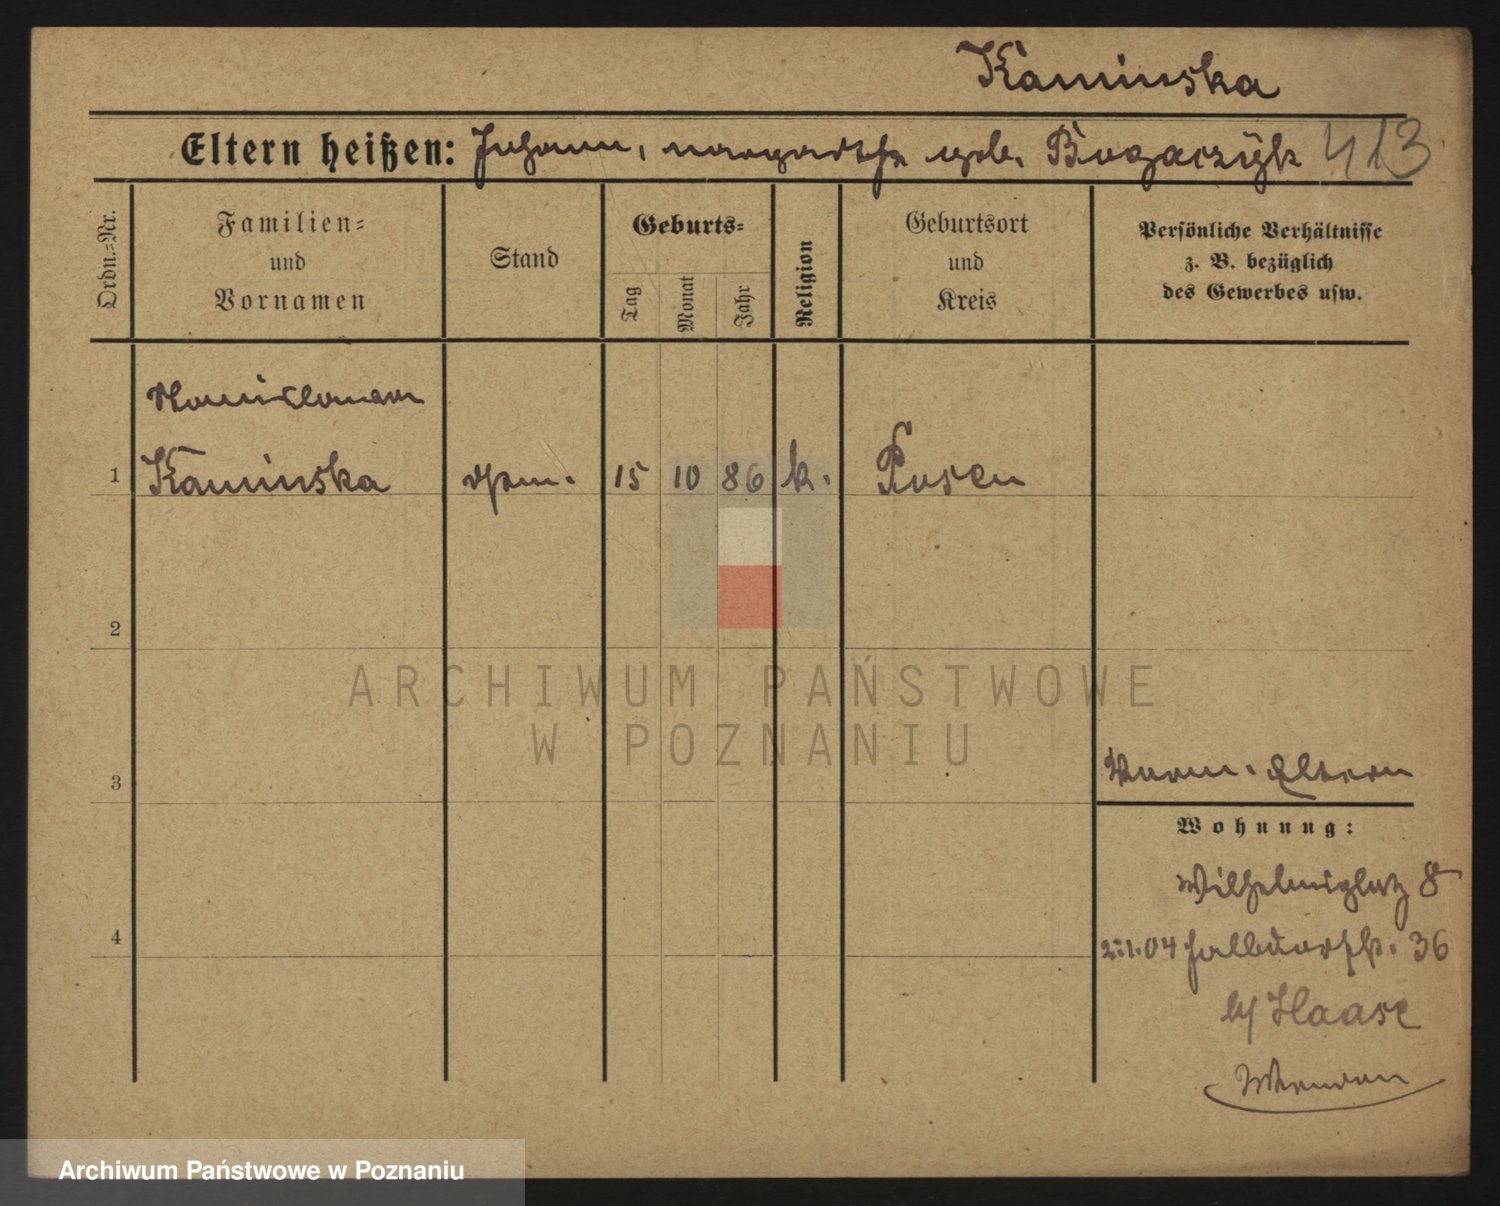 Kaminska
Eltern heißen: Johann, Margarethe geb. Bogaczyk 413
Ordn.-Nr.
Familien-
und
Vornamen
Stand
Geburts-
Tag
Monat
Jahr
Religion
Geburtsort
und
Kreis
Persönliche Verhältnisse
z. B. bezüglich
des Gewerbes usw.
1 Kaminska 15 10 86 k. Posen
2
3
Eltern
Wohnung:
Wilhelmsplatz 8
4
1.04 36
Haase
ARCHIWUM PAŃSTWOWE
W POZNANIU
Archiwum Państwowe w Poznaniu